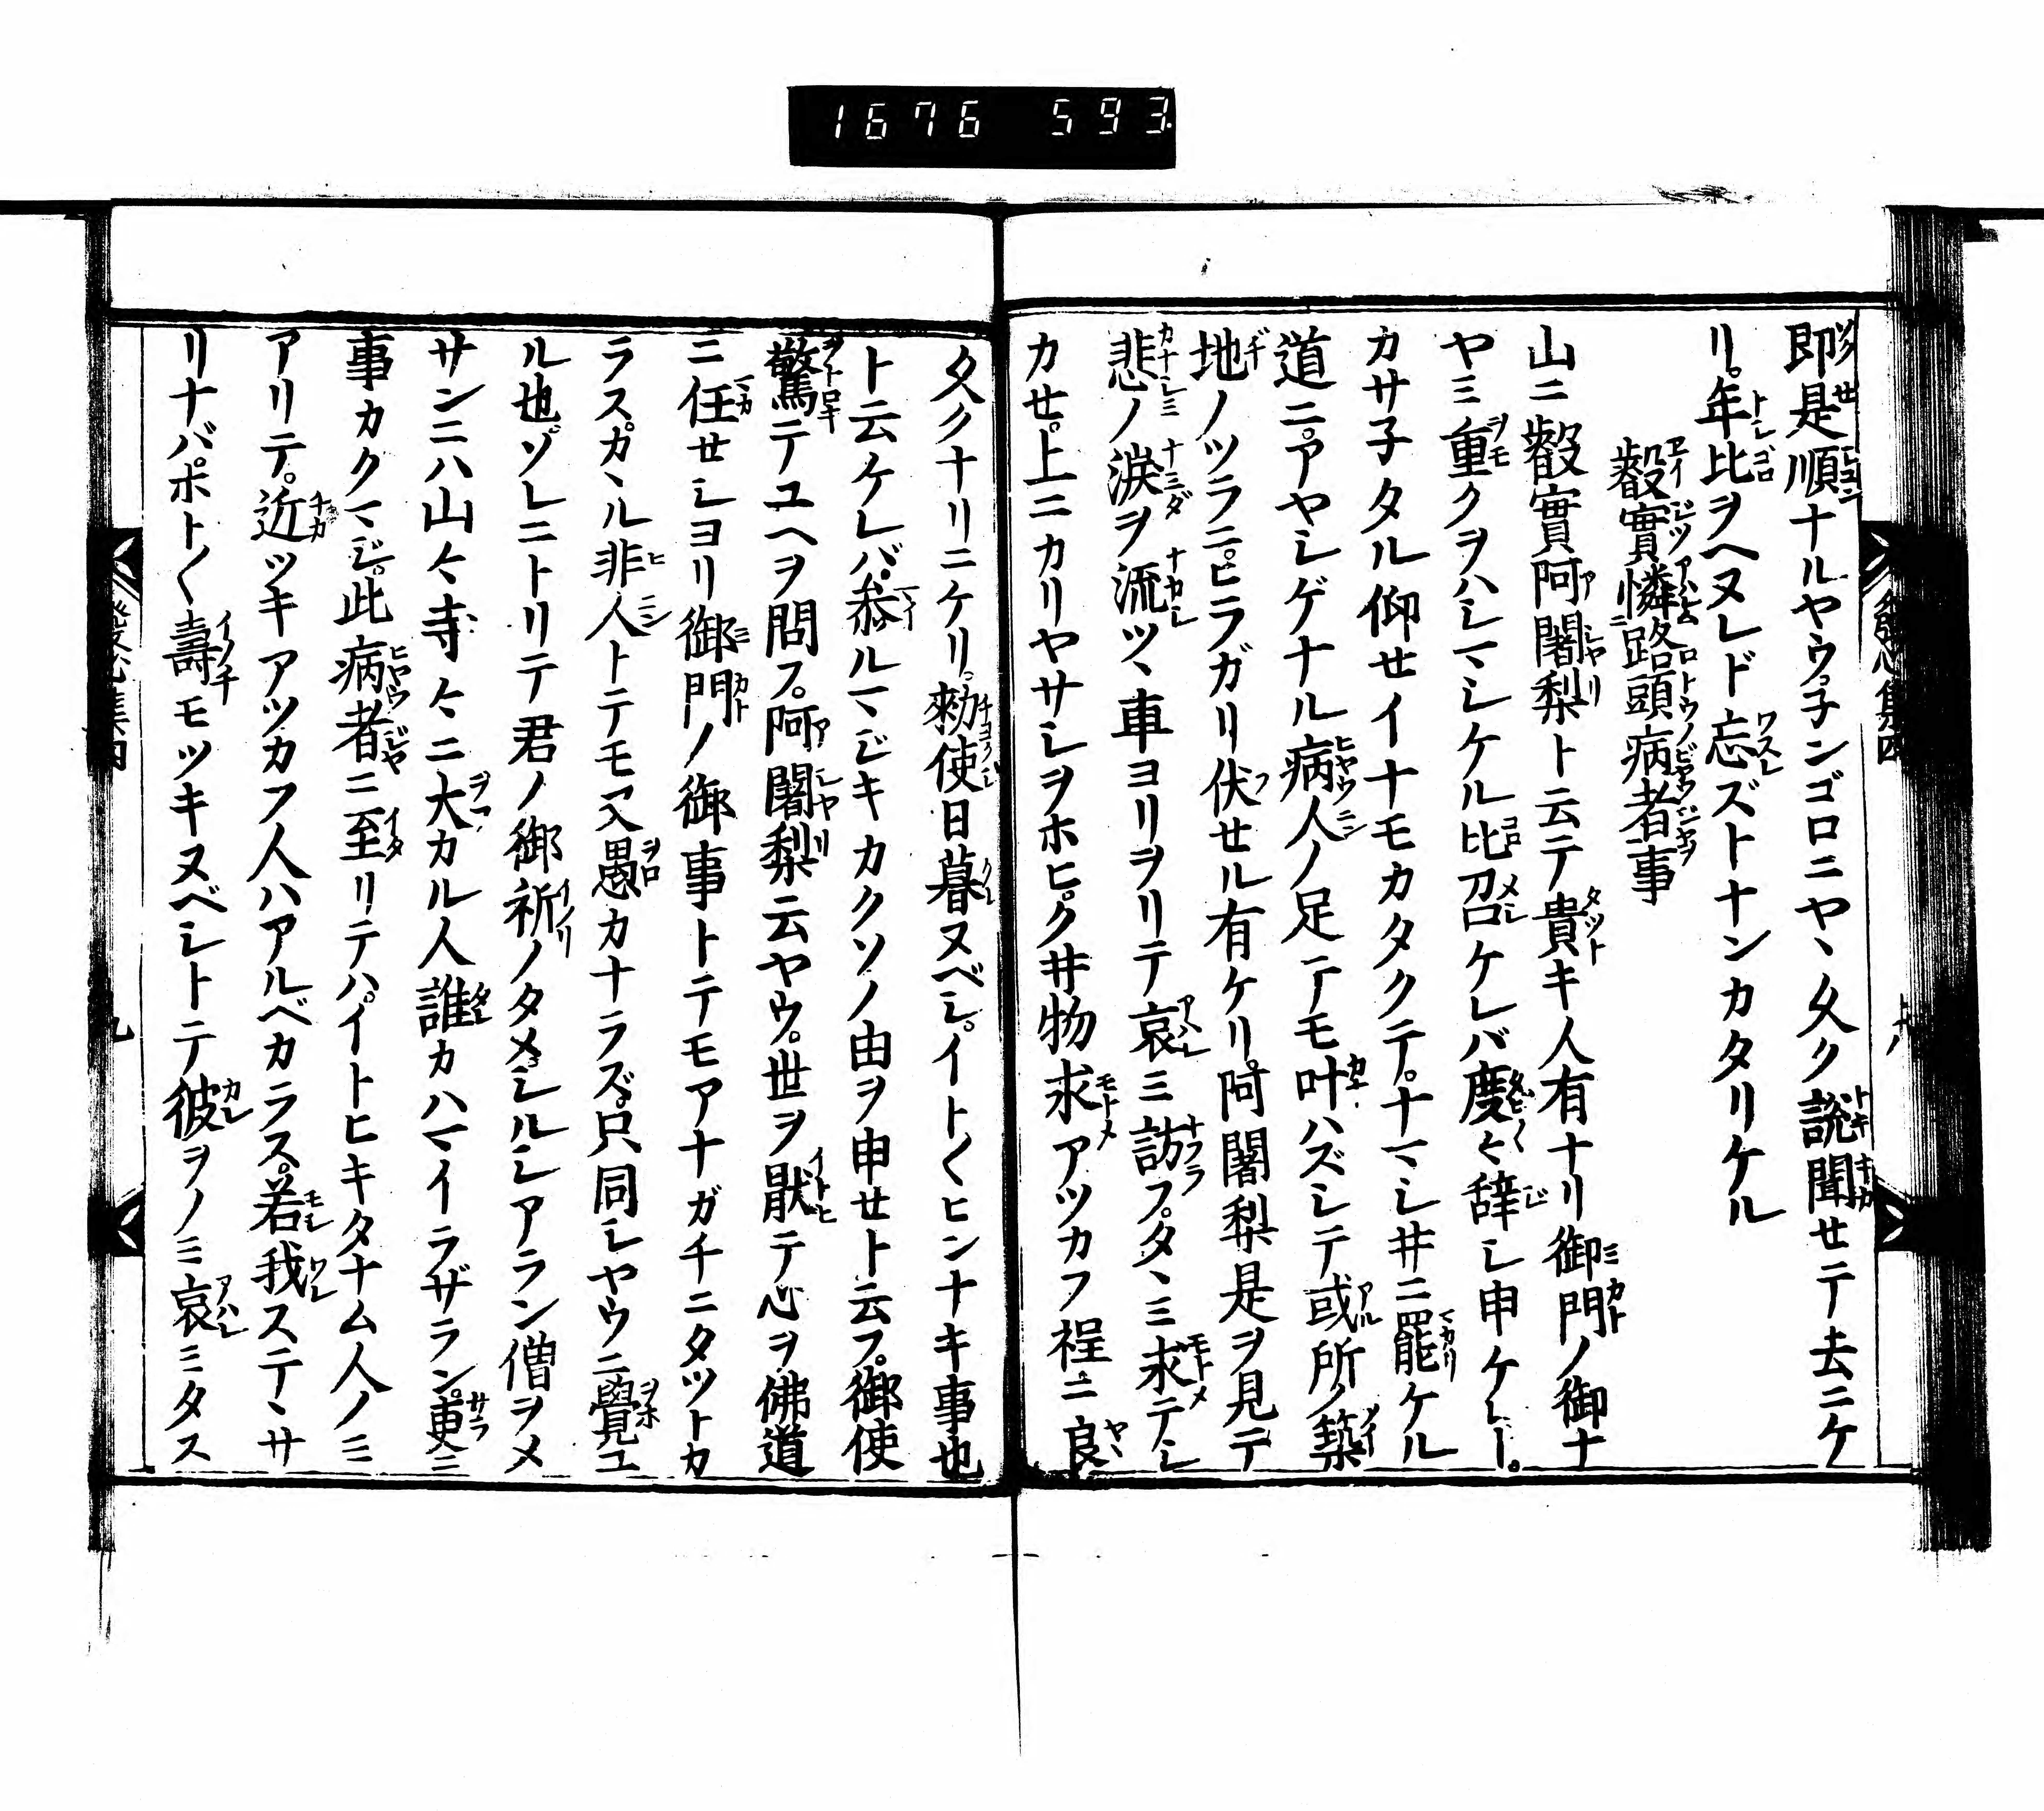 1676 593.
即是順ナルヤウ。子ンゴロニヤヽ久ク説聞セテ去ニケ
リ。年比ヲヘヌレド忘ズトナンカタリケル
叡實憐路頭病者事
山ニ叡實阿闍梨ト云テ貴キ人有ナリ御門ノ御ナ
ヤミ重クヲハシマシケル比召ケレバ度々辞シ申ケレ𪜈。
カサ子タル仰セイナモカタクテ。ナマシ井ニ罷ケル
道ニ。アヤシゲナル病人ノ足手モ叶ハズシテ或所ノ築
地ノツラニ。ヒラガリ伏セル有ケリ。阿闍梨是ヲ見テ
悲ノ涙ヲ流ツヽ車ヨリヲリテ哀ミ訪フ。タヽミ求テシ
カセ。上ニカリヤサシヲホヒ。ク井物求アツカフ程ニ良
久クナリニケリ。勅使日暮ヌベシ。イト〱ヒンナキ事也
ト云ケレバ。参ルマジキカクソノ由ヲ申セト云フ。御使
驚テユヘヲ問フ。阿闍梨云ヤウ。世ヲ厭テ心ヲ佛道
ニ任セシヨリ御門ノ御事トテモアナガチニタツトカ
ラス。カヽル非人トテモ又愚カナラズ。只同シヤウニ覺エ
ル也。ソレニトリテ君ノ御祈ノタメ。シルシアラン僧ヲメ
サンニハ山々寺々ニ大カル人誰カハマイラザラン。更ニ
事カクマジ。此病者ニ至リテハ。イトヒキタナム人ノミ
アリテ。近ツキアツカフ人ハアルベカラス。若我ステヽサ
リナバ。ホト〱壽モツキヌベシトテ彼ヲノミ哀ミタス
發心集四
八
發心集四
九